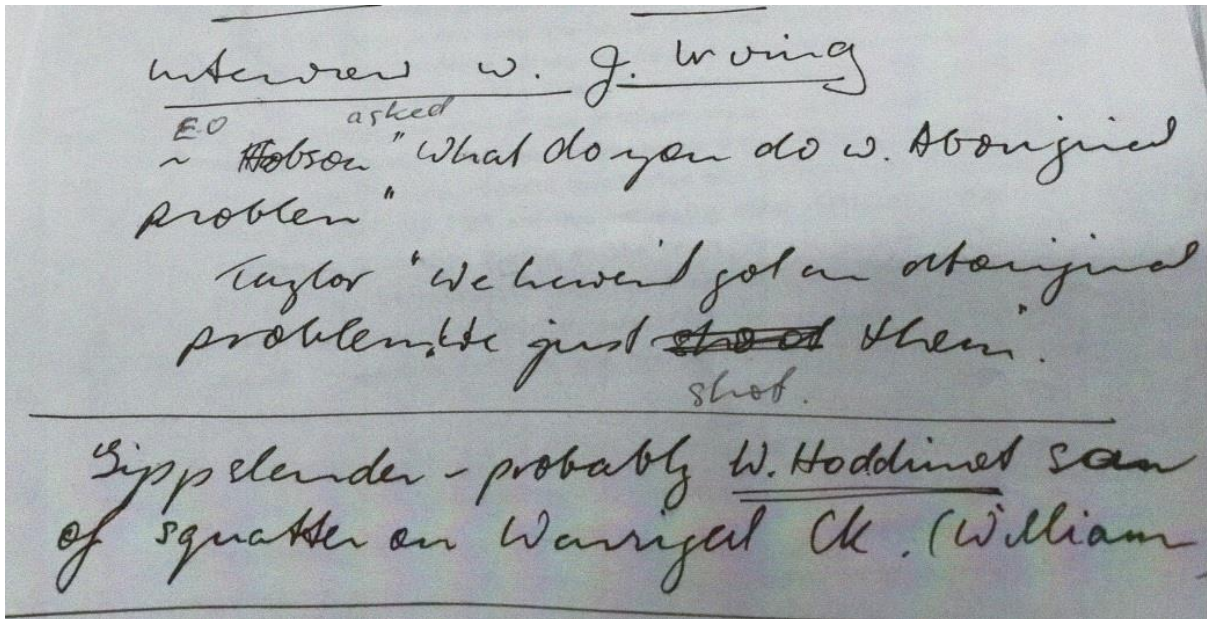 Interview w. J. Irving
E.O asked
~ Hobson "What do you do w. Aboriginal
problem"
Taylor "We haven't got an aboriginal
problem. We just shoot them".
shot.
Gippslander - probably W. Hoddinot son
of squatter on Warrigal Ck. (William